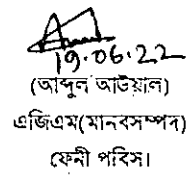 19.06.22
(আব্দুল আউয়াল)
এজিএম(মানবসম্পদ)
ফেনী পবিস।